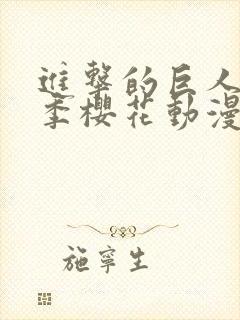 進擊的巨人
季櫻花動漫
施寧生